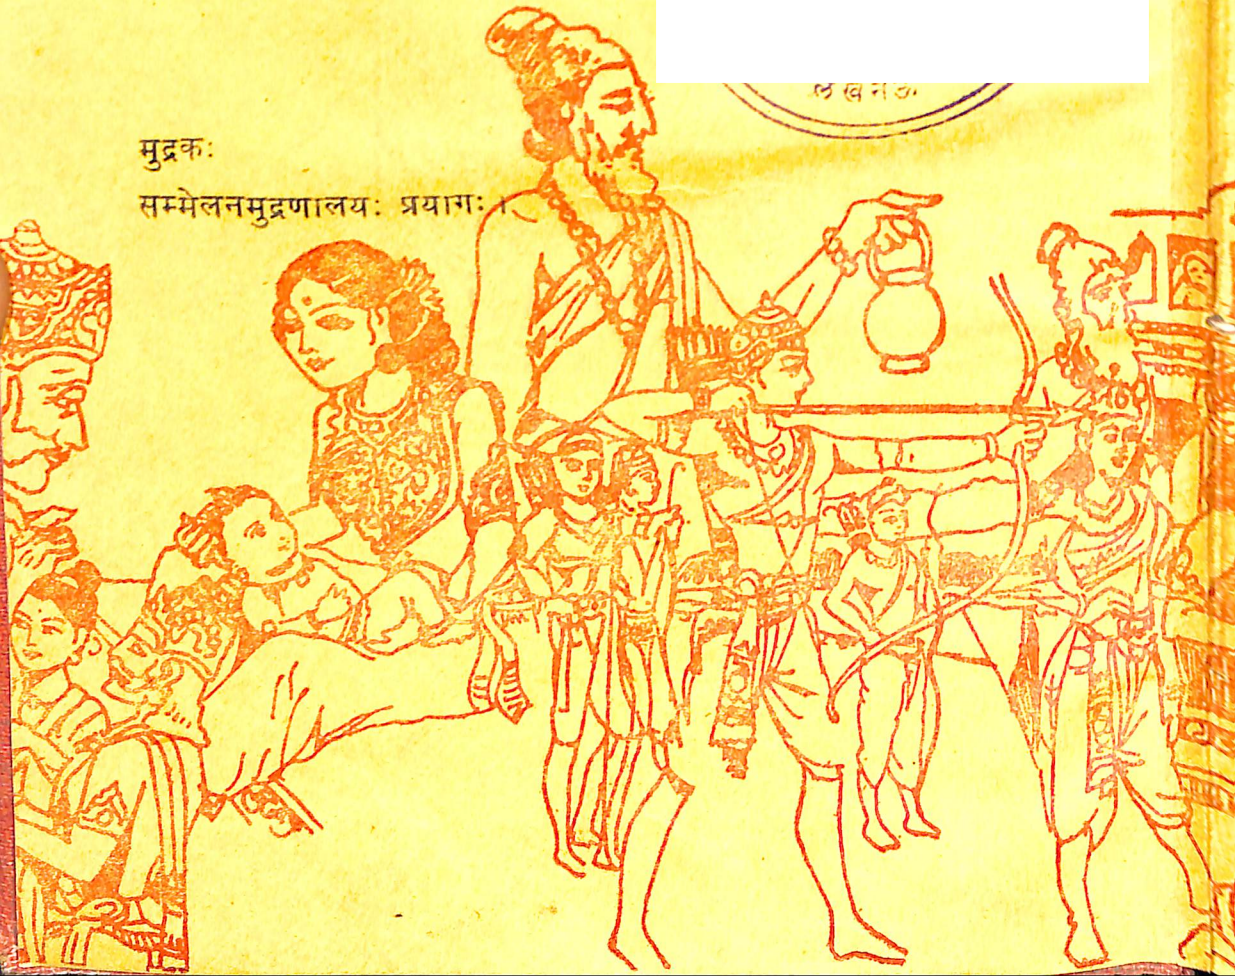 लखनऊ
मुद्रकः
सम्मेलनमुद्रणालयः प्रयागः ।